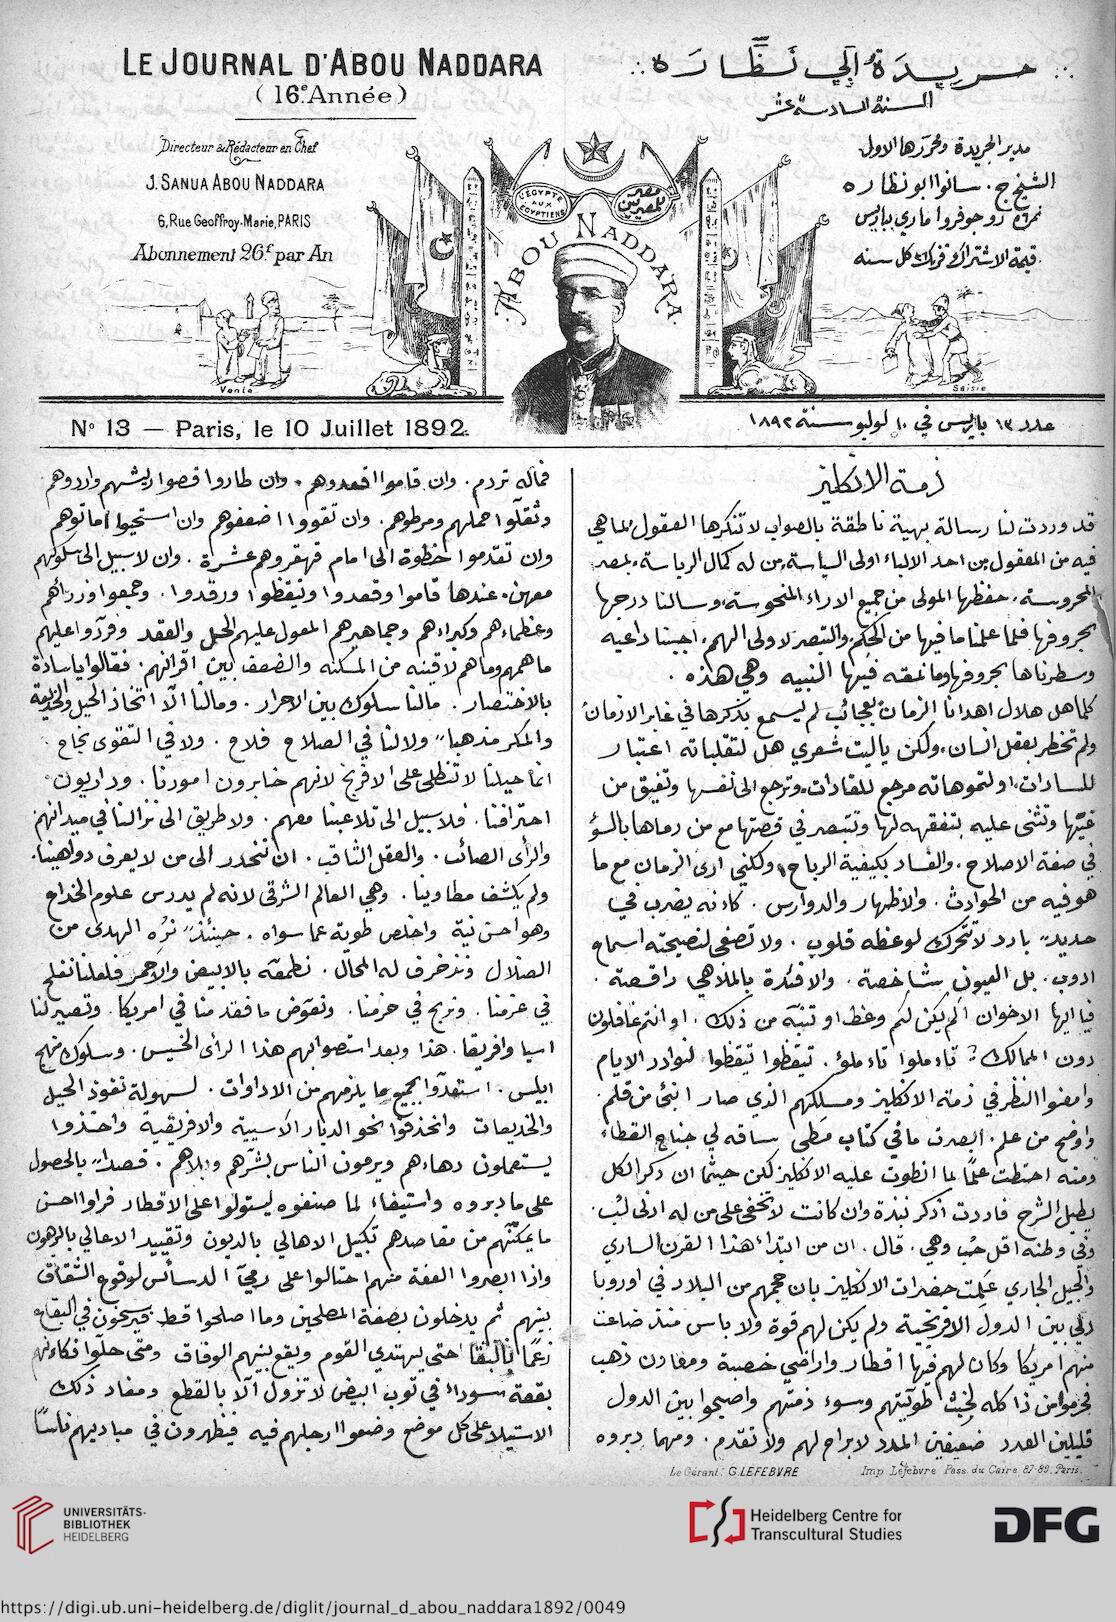 LE JOURNAL D'ABOU NADDARA
(16e Année)
Directeur & Rédacteur en Chef
J. SANUA ABOU NADDARA
6, Rue Geoffroy-Marie, PARIS
Abonnement 26f par An
جريدة أبي نظارة
السنة السادسة عشر
مدير الجريدة ومحررها الاول
الشيخ ج. سانوا ابو نظاره
نمرة ٦ رو جوفروا ماري بباريس
قيمة الاشتراك ٢٦ فرنك كل سنه
L'ÉGYPTE AUX ÉGYPTIENS
مصر للمصريين
ABOU NADDARA
Vente
Saisie
N° 13 — Paris, le 10 Juillet 1892
عدد ١٣ باريس في ١٠ لوليو سنة ١٨٩٢
ذمة الانكليز
قد وردت لنا رسالة بهية ناطقة بالصواب لا تنكرها العقول لما هي
فيه من المعقول من احد الالباء اولى السياسة من له كمال الرياسة بمصر
المحروسة. حفظها المولى من جميع الاراء المنحوسة وسالنا درجها
بحروفها فلما علمنا ما فيها من الحكم والتبصر لاولى الهمم. اجبنا داعيه
وسطرناها بحروفها وما نمقه فيها النبيه وهي هذه.
كلما هل هلال اهدانا الزمان بعجائب لم يسمع بذكرها في غابر الازمان
ولم تخطر بعقل انسان. ولكن ياليت شعري هل لتقلباته اعتبار
للسادات. او لتموهاته مرجع للقادات. وترجع الى نفسها وتفيق من
غيها وتثنى عليه بتفقهه لها وتتبصر في قصتها مع من رماها بالسؤ
في صفة الاصلاح. والفساد بكيفية الرباح. ولكني ارى الزمان مع ما
هو فيه من الحوادث. والاظهار والدوارس. كانه يضرب في
حديد بارد لا تتحرك لوعظه قلوب. ولا تصغى لنصيحته اسماع
ادوب. بل العيون شاخصة. والافئدة بالملاهي راقصة.
فيا ايها الاخوان الم يكن لكم وعظ او تنبه من ذلك. او انتم غافلون
دون الممالك؟ تاءملوا تاءملوا. تيقظوا تيقظوا لنوادر الايام
وامعنوا النظر في ذمة الانكليز ومسلكهم الذي صار ابنئ من قلم
واوضح من علم. ابصرت ما في كتاب مطى ساقه لي جناح القطاء
ومنه احتطت علما لما انطوت عليه الانكليز لكن حيثما ان ذكر الكل
يطيل الشرح فاردت اذكر نبذة وان كانت لا تخفى على من له ادنى لب
وفي وطنه اقل حب وهي. قال. ان من ابتداء هذا القرن الساري
والجيل الجاري علمت حضرات الانكليز بان حجمهم من البلاد في اوروبا
دني بين الدول الافرنجية ولم يكن لهم قوة ولا باس منذ ضاعت
منهم امريكا وكان لهم فيها اقطار واراضي خصبة ومعادن ذهب
فحرموا من ذا كله لخبث طويتهم وسوء ذمتهم واصبحوا بين الدول
قليلين العدد ضعيفين المدد لا براح لهم ولا تقدم. ومهما دبروه
فماله تردم. وان قاموا اقعدوهم. وان طاروا قصوا ريشهم واردوهم
وثقلوا حملهم ومرطوهم. وان تقووا اضعفوهم وان استحيوا اماتوهم
وان تقدموا خطوة الى امام قهقروهم عشرة. وان لا سبيل الى سلوكهم
معهن. عندها قاموا وقعدوا وتيقظوا ورقدوا. وجمعوا وزرائهم
وعظماءهم وكبراءهم وجماهيرهم المعول عليهم الحل والعقد وقرؤا عليهم
ما همهم وما هم لاقينه من المسكنه والضعف بين اقرانهم. فقالوا يا سادة
بالاختصار. مالنا سلوك بين الاحرار. ومالنا الا اتخاذ الحيل والخديعة
والمكر مذهبا ولا لنا في الصلاح فلاح. ولا في التقوى نجاح.
انما حيلنا لا تنطلى على الافرنج لانهم خابرون امورنا. وداريون
احترافنا. فلا سبيل الى تلاعبنا معهم. ولا طريق الى نزالنا في ميدانهم
والرأى الصائب. والعقل الثاقب. ان ننحدر الى من لا يعرف دواهينا.
ولم يكشف مطاوينا. وهي العالم الشرقى لانه لم يدرس علوم الخداع
وهو احسن نية واخلص طوية عما سواه. حينئذ نره الهدى من
الضلال ونزخرف له المحال. نطمعه بالابيض والاحمر فلعلنا نفلح
في عزمنا. ونربح في حزمنا. ونعوض ما فقد منا في امريكا. وتصير لنا
اسيا وافريقا. هذا وبعد استصوابهم هذا الرأى الخسيس. وسلوك نهج
ابليس. استعدوا بجميع ما يلزمهم من الاداوات. لسهولة نفوذ الحيل
والخديعات وانحذقوا نحو الديار الاسيية والافريقية واخذوا
يستعملون دهاءهم ويرمون الناس بشرهم وبلاهم. قصدا بالحصول
على ما دبروه واستيفاء لما صنفوه ليستولوا على الاقطار فراوا احسن
ما يمكنهم من مقاصدهم تكبيل الاهالي بالديون وتقييد الاعالي بالرهون
واذا ابصروا العفة منهم احتالوا على رمي الدسائس لوقوع الشقاق
بينهم ثم يدخلون بصفة المصلحين وما اصلحوا قط فيرسخون في البقاع
زعما بالبقا حتى يهتدى القوم ويقع بينهم الوفاق ومتى حلوا فكانهم
بقعة سوداء في ثوب ابيض لا تزول الا بالقطع ومفاد ذلك
الاستيلا على كل موضع وضعوا ارجلهم فيه فيظهرون في مباديهم ناسا
Le Gérant: G. LEFEBVRE
Imp. Lefebvre Pass. du Caire 87-89. Paris.
UNIVERSITÄTS-
BIBLIOTHEK
HEIDELBERG
Heidelberg Centre for
Transcultural Studies
DFG
https://digi.ub.uni-heidelberg.de/diglit/journal_d_abou_naddara1892/0049